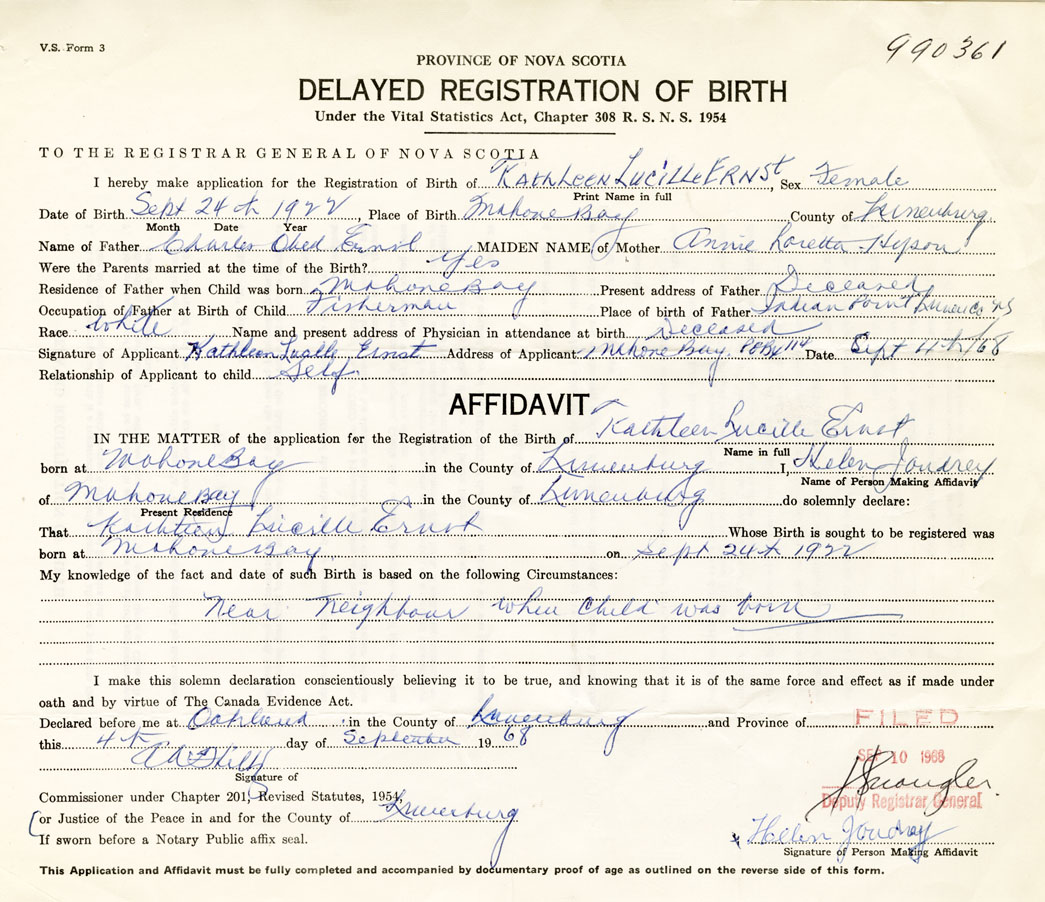 V.S. Form 3
990361
PROVINCE OF NOVA SCOTIA
DELAYED REGISTRATION OF BIRTH
Under the Vital Statistics Act, Chapter 308 R. S. N. S. 1954
TO THE REGISTRAR GENERAL OF NOVA SCOTIA
I hereby make application for the Registration of Birth of KAthLEEN LuciLLE ERNSt, Sex Female
Print Name in full
Date of Birth Sept 24th 1922, Place of Birth Mahone Bay County of Lunenburg
Month Date Year
Name of Father Charles Obed Ernst MAIDEN NAME of Mother Annie Loretta Hyson
Were the Parents married at the time of the Birth? Yes
Residence of Father when Child was born Mahone Bay Present address of Father Deceased
Occupation of Father at Birth of Child Fisherman Place of birth of Father Indian Point Lunen Co. NS
Race White Name and present address of Physician in attendance at birth Deceased
Signature of Applicant Kathleen Lucille Ernst Address of Applicant Mahone Bay. PO Bx 114 Date Sept 4th/68
Relationship of Applicant to child Self.
AFFIDAVIT
IN THE MATTER of the application for the Registration of the Birth of Kathleen Lucille Ernst
Name in full
born at Mahone Bay in the County of Lunenburg I, Helen Joudrey
Name of Person Making Affidavit
of Mahone Bay in the County of Lunenburg do solemnly declare:
Present Residence
That Kathleen Lucille Ernst Whose Birth is sought to be registered was
born at Mahone Bay on Sept 24th 1922
My knowledge of the fact and date of such Birth is based on the following Circumstances:
Near Neighbour when Child was born
I make this solemn declaration conscientiously believing it to be true, and knowing that it is of the same force and effect as if made under
oath and by virtue of The Canada Evidence Act.
Declared before me at Oakland in the County of Lunenburg and Province of
FILED
this 4th day of September 1968
SEP 10 1968
Signature of
Commissioner under Chapter 201, Revised Statutes, 1954,
Deputy Registrar General
or Justice of the Peace in and for the County of Lunenburg
If sworn before a Notary Public affix seal.
x Helen Joudrey
Signature of Person Making Affidavit
This Application and Affidavit must be fully completed and accompanied by documentary proof of age as outlined on the reverse side of this form.